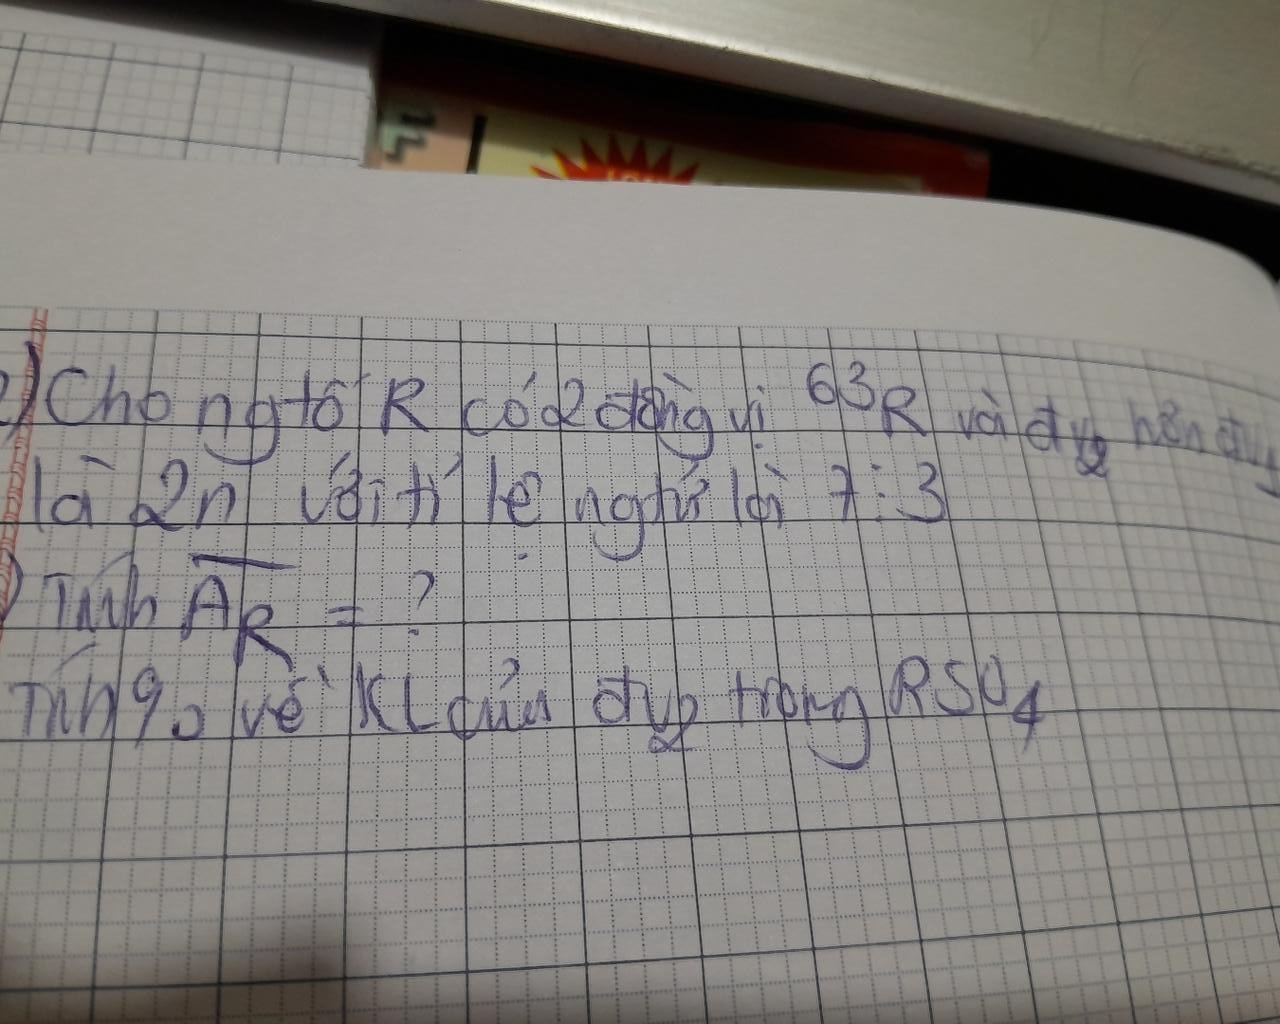 ) Cho ngtố R có 2 đồng vị 63R và đv2 hơn đv
là 2n với tỉ lệ ngtử là 7:3
) Tính AR = ?
Tính % về KL của đv2 trong RSO4